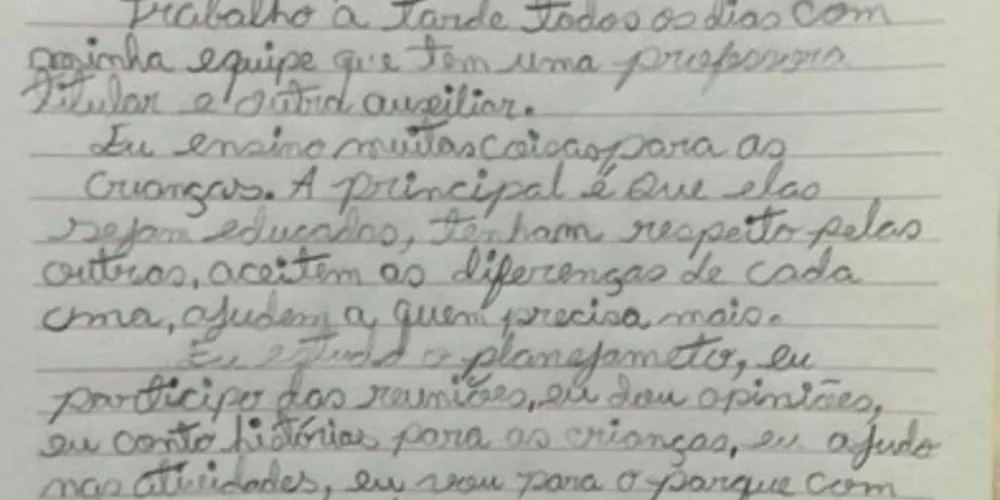 Trabalho a tarde todos os dias com
minha equipe que tem uma professora
titular e outra auxiliar.
Eu ensino muitas coisas para as
crianças. A principal é que elas
sejam educadas, tenham respeito pelas
outras, aceitem as diferenças de cada
uma, ajudem a quem precisa mais.
Eu estudo o planejameto, eu
participo das reuniões, eu dou opiniões,
eu conto histórias para as crianças, eu ajudo
nas atividades, eu vou para o parque com